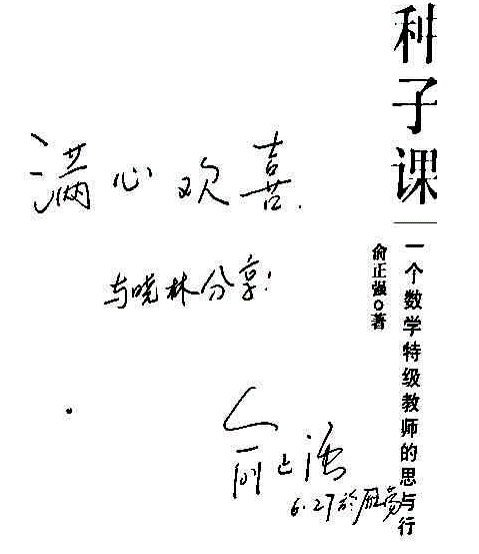 种子课
一个数学特级教师的思与行
俞正强◎著
满心欢喜.
与晓林分享!
俞正强
6.27於雁荡